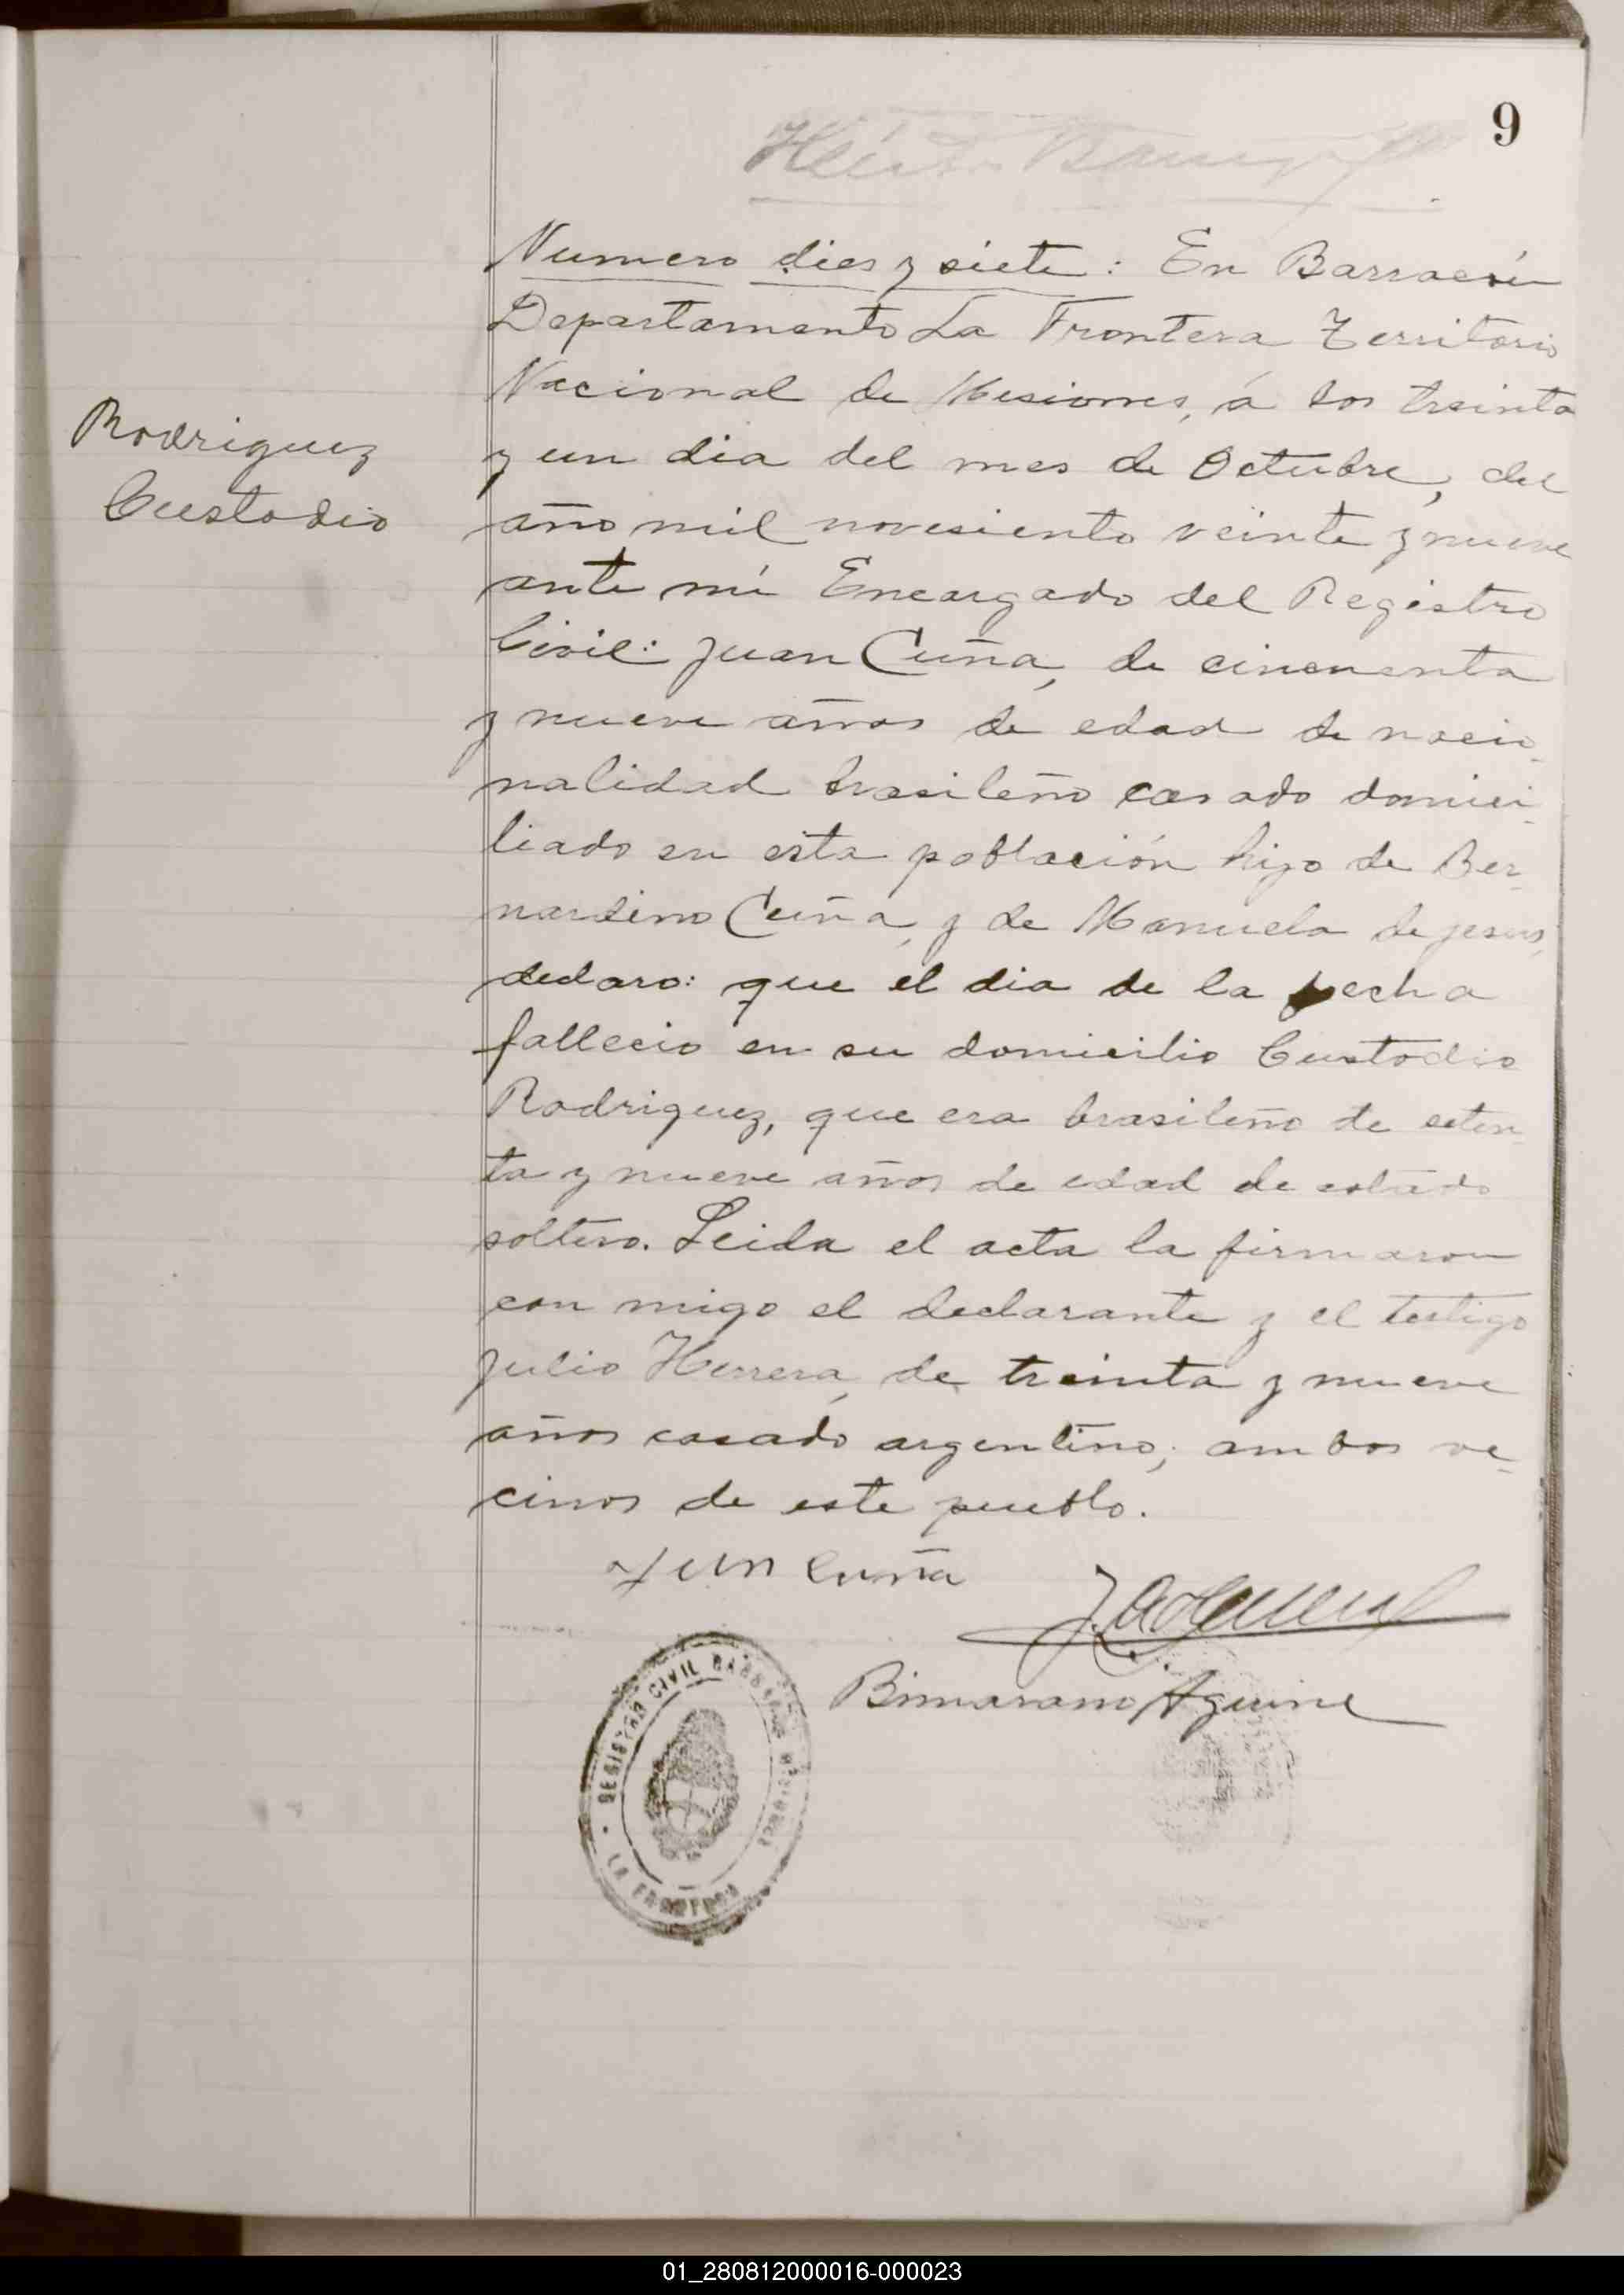 9
Rodriguez
Custodio
Numero dies y siete: En Barracón
Departamento La Frontera Territorio
Nacional de Misiones, á los treinta
y un dia del mes de Octubre, del
año mil novesiento veinte y nueve
ante mí Encargado del Registro
Civil: Juan Cuña, de cincuenta
y nueve años de edad de nacio-
nalidad brasileño casado domici-
liado en esta población hijo de Ber-
nardino Cuña, y de Manuela de jesus,
declaro: que el dia de la fecha
fallecio en su domicilio Custodio
Rodriguez, que era brasileño de seten
ta y nueve años de edad de estado
soltero. Leida el acta la firmaron
con migo el declarante y el testigo
Julio Herrera, de treinta y nueve
años casado argentino; ambos ve-
cinos de este pueblo.
Juan Cuña
REGISTRO CIVIL MISIONES
LA FRONTERA
01_280812000016-000023